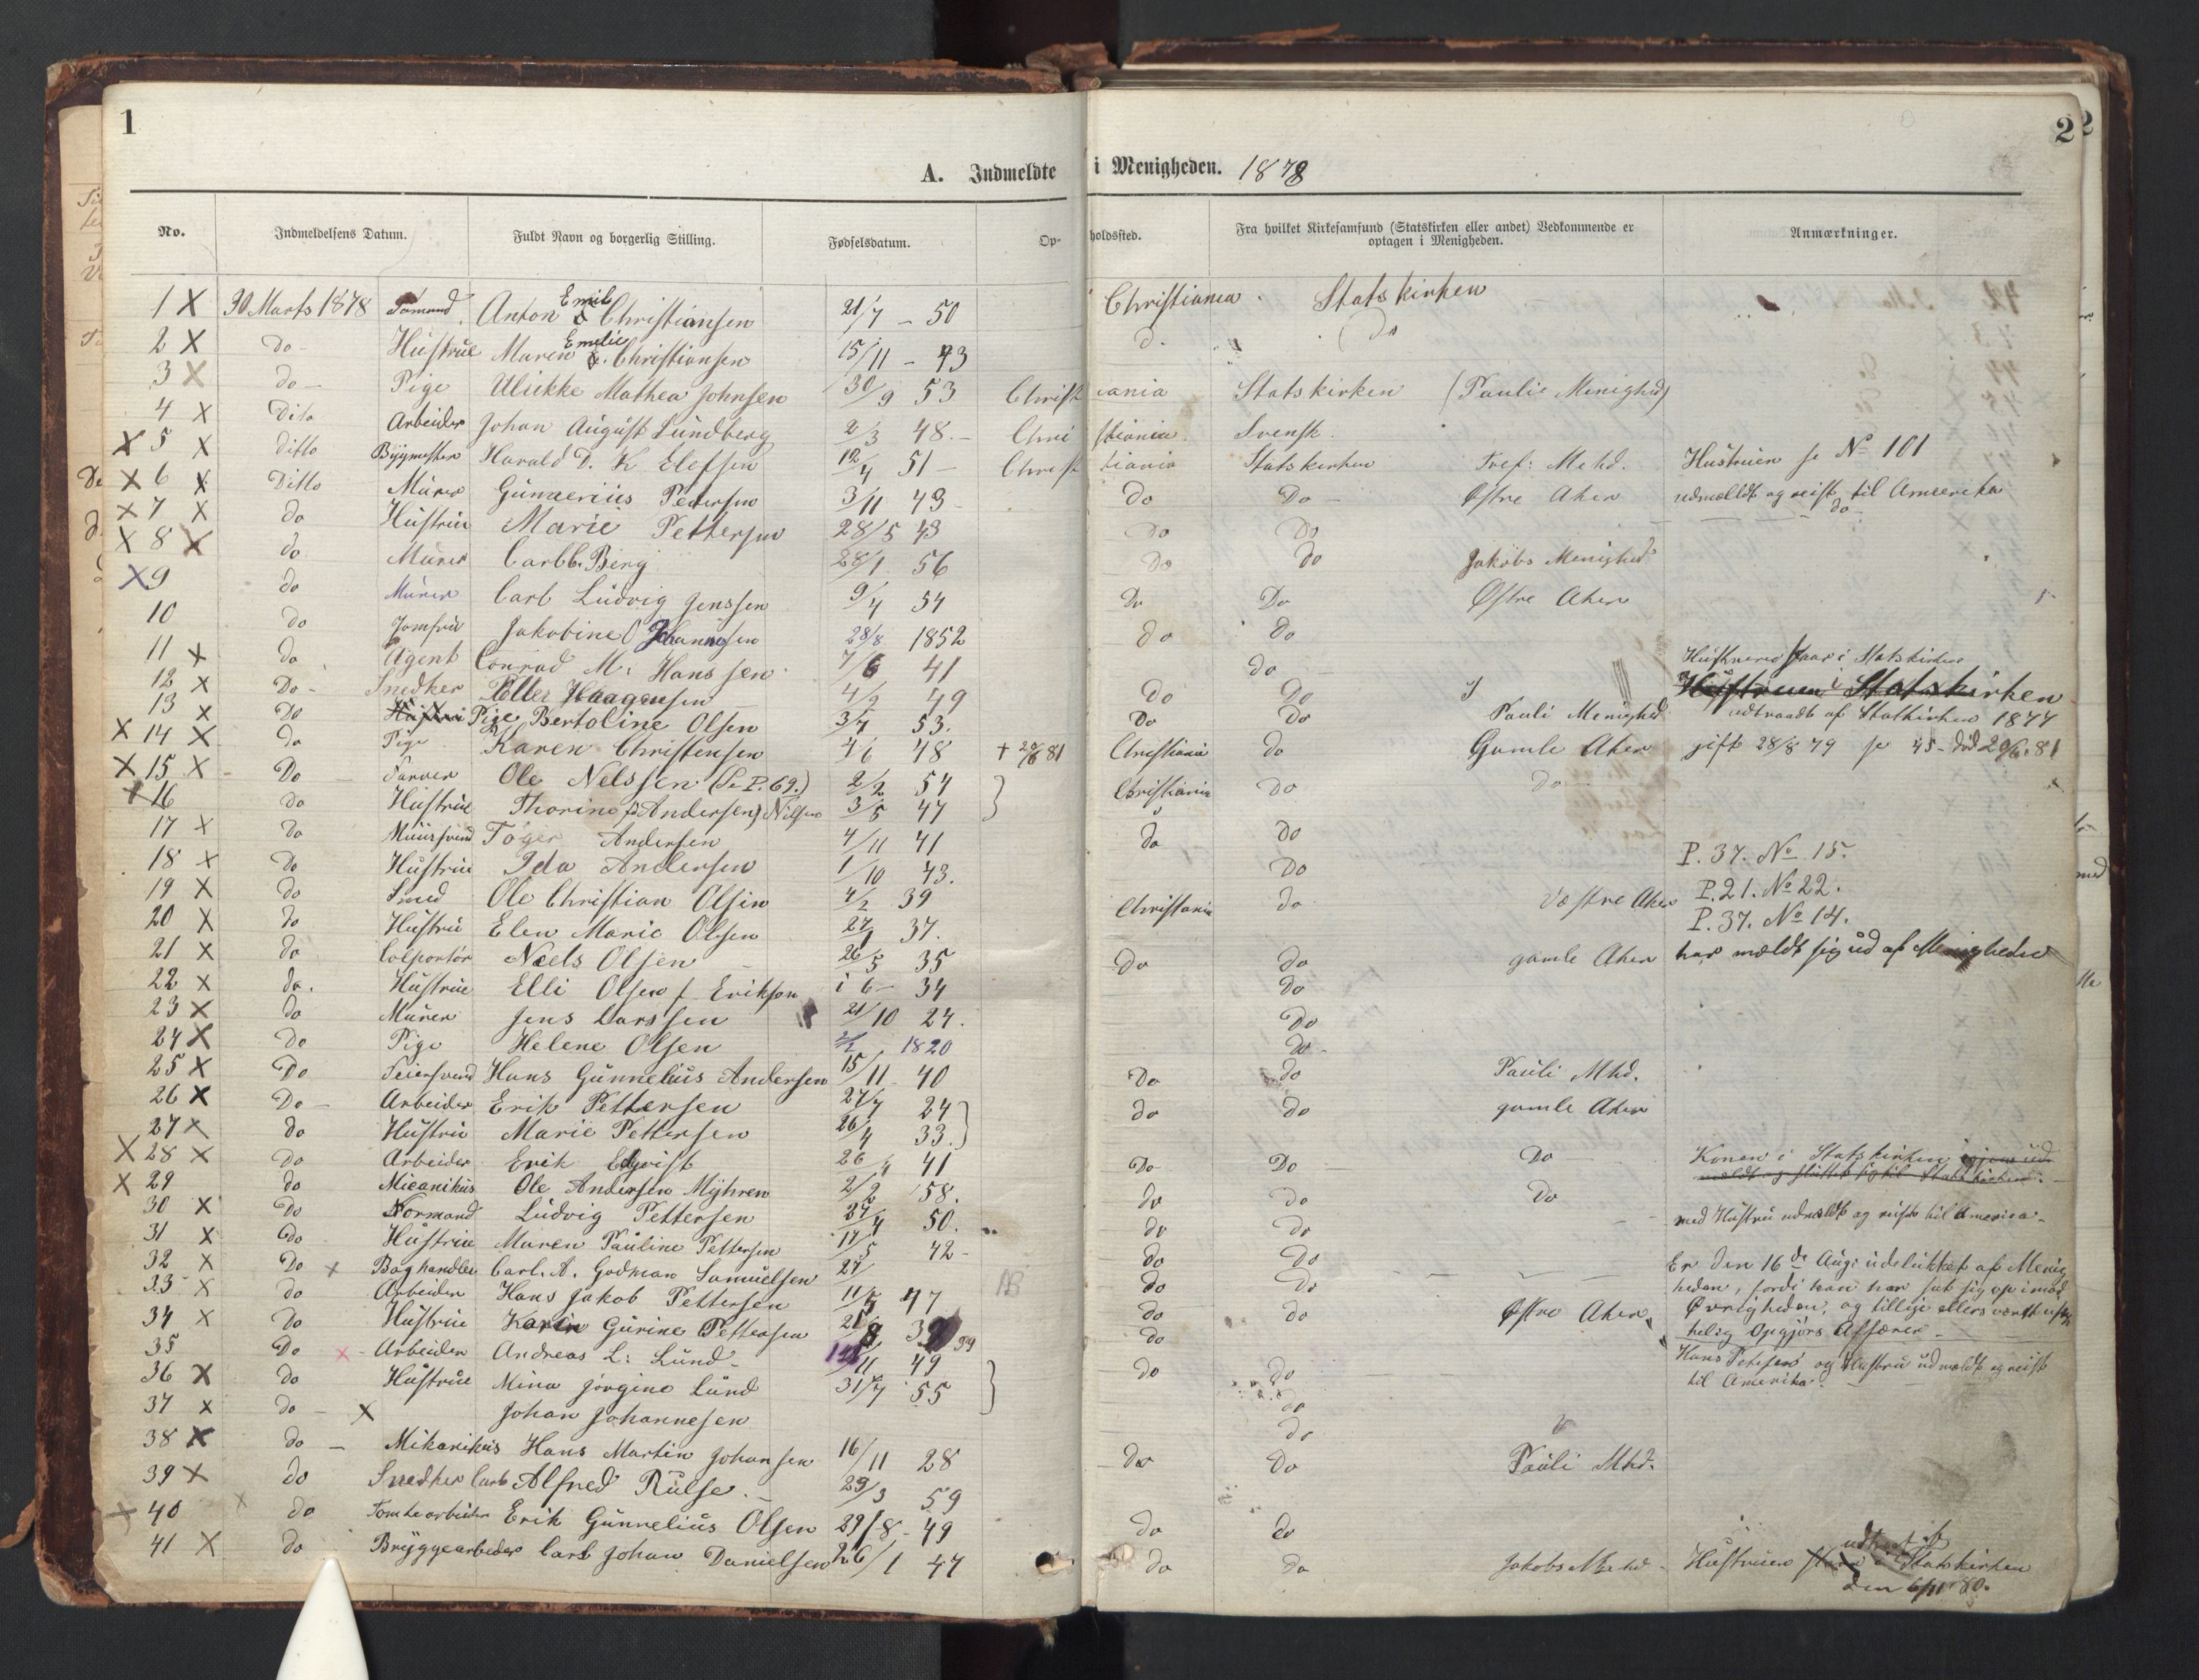 1
2
A. Indmeldte i Menigheden. 1878
No. Indmeldelsens Datum. Fuldt Navn og borgerlig Stilling. Fødselsdatum. Opholdssted. Fra hvilket Kirkesamfund (Statskirken eller andet) Vedkommende er optagen i Menigheden. Anmærkninger.
1 X 30 Marts 1878 Anton Emil Christiansen 21/7 - 50 Christiania Statskirken
2 X do Hustrue Maren Emelie Christiansen 15/11 - 43 d. do
3 X do Pige Ulrikke Mathea Johnsen 30/9 53 Christiania Statskirken (Paulie Menighed)
4 X Dito Arbeider Johan August Lundberg 2/3 48 Christiania Svensk
X 5 X ditto Harald D. K. Elefsen 12/4 51 Christiania Statskirken Tref: Mehd. Hustruen se No 101
X 6 X Ditto Murer Pedersen 3/11 43 Do Do Østre Aker udmældt og reist til Amerika
X 7 X do Hustrue Marie Pettersen 28/5 43 Do Do do
X 8 X do Murer Berg 28/1 56 Do do Jakobs Menighed
X 9 do Murer Carl Ludvig Jenssen 9/4 54 Do Do Østre Aker
10 do Jomfru Jakobine Johannesen 28/8 1852 do do
11 X do Agent Conrad M. Hanssen 7/6 41 do Hustruen staar i Statskirken
12 X Do Snedker Haagensen 4/2 49 Do Do Hustruen i Statskirken
13 X Do Pige Bertoline Olsen 3/7 53. Do Do Pauli Menighed udtraadt af Statkirken 1877
X 14 X do Pige Karen Christensen 4/6 48 + 20/6 81 Christiania do Gamle Aker gift 28/8 79 se 45 - død 20/6 81
X 15 X Do Farver Ole Nelssen (Se P. 69.) 2/2 54 Christiania Do Do
X 16 do Hustrue Thorine f. Andersen) Nilsen 3/5 47
17 X do Andersen 4/11 41 do do
18 X Do Hustrue Ida Andersen 1/10 43. Do P. 37. No 15.
19 X do Smed Ole Christian Olsen 4/2 39 Christiania do Vestre Aker P. 21. No 22.
20 X do Hustru Elen Marie Olsen 27/1 37. P. 37. No 14.
21 X do Colportør Neels Olsen 26/5 35 Do do gamle Aker har mældt sig ud af Menigheden
22 X do. Hustrue Elli Olsen f. Eriksen 34 do
23 X do Murer Jens Larssen 21/10 24. Do
24 X Do Pige Helene Olsen 1820 do
25 X Do Feiersvend Hans Gunnelius Andersen 15/11 40 Do do Pauli Mhd.
26 X Do Arbeider Erik Pettersen 27/7 24 do do gamle Aker
27 X do Hustru Marie Pettersen 26/4 33.
X 28 X Do Arbeider Erik Edqvist 26/4 41 Do Do Do Konen i Statskirken
X 29 do Micanikus Ole Andersen Myhren 2/2 58. do do Do
30 X Do Formand Ludvig Pettersen 50. do do med Hustru udmeldt og reist til Amerika
31 X Do Hustrue Maren Pauline Pettersen 17/5 42 do Do
32 X Do X Boghandler Carl. A. Godman Samuelsen 27/ do Do Er den 16de Aug: udelukket af Menig
33 X do Arbeider Hans Jakob Pettersen 11/5 47 do do Østre Aker heden, fordi han har sat sig op imod
34 X Do Hustrue Karen Gurine Pettersen 39 do Øvrigheden, og tillige
35 Do X Arbeider Andreas L: Lund 49 do do Opgjørs Affærer
36 X do Hustrue Mina Jørgine Lund 31/7 55 do Hans Petersen og Hustru udmeldt og reist
37 X do X Johan Johannesen do til Amerika.
38 X do Mikanikus Hans Martin Johansen 16/11 28 do Do Pauli Mhd.
39 X do Snedker Carl Alfred Rulse 29/3 59
X 40 X do Tomtearbeider Erik Gunnelius Olsen 29/8 - 49 do do
41 X do Bryggearbeider Carl Johan Danielsen 26/1 47 do do Jakobs Mehd Hustruen udtraadt af Statskirken
den 6/11 80.